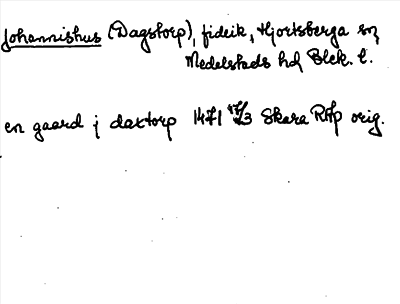 Johannishus (Dagstorp), fideik, Hjortsberga sn
Medelstads hd, Blek. l.
en gaard j daxtorp 1471 17/3 Skara RAp orig.